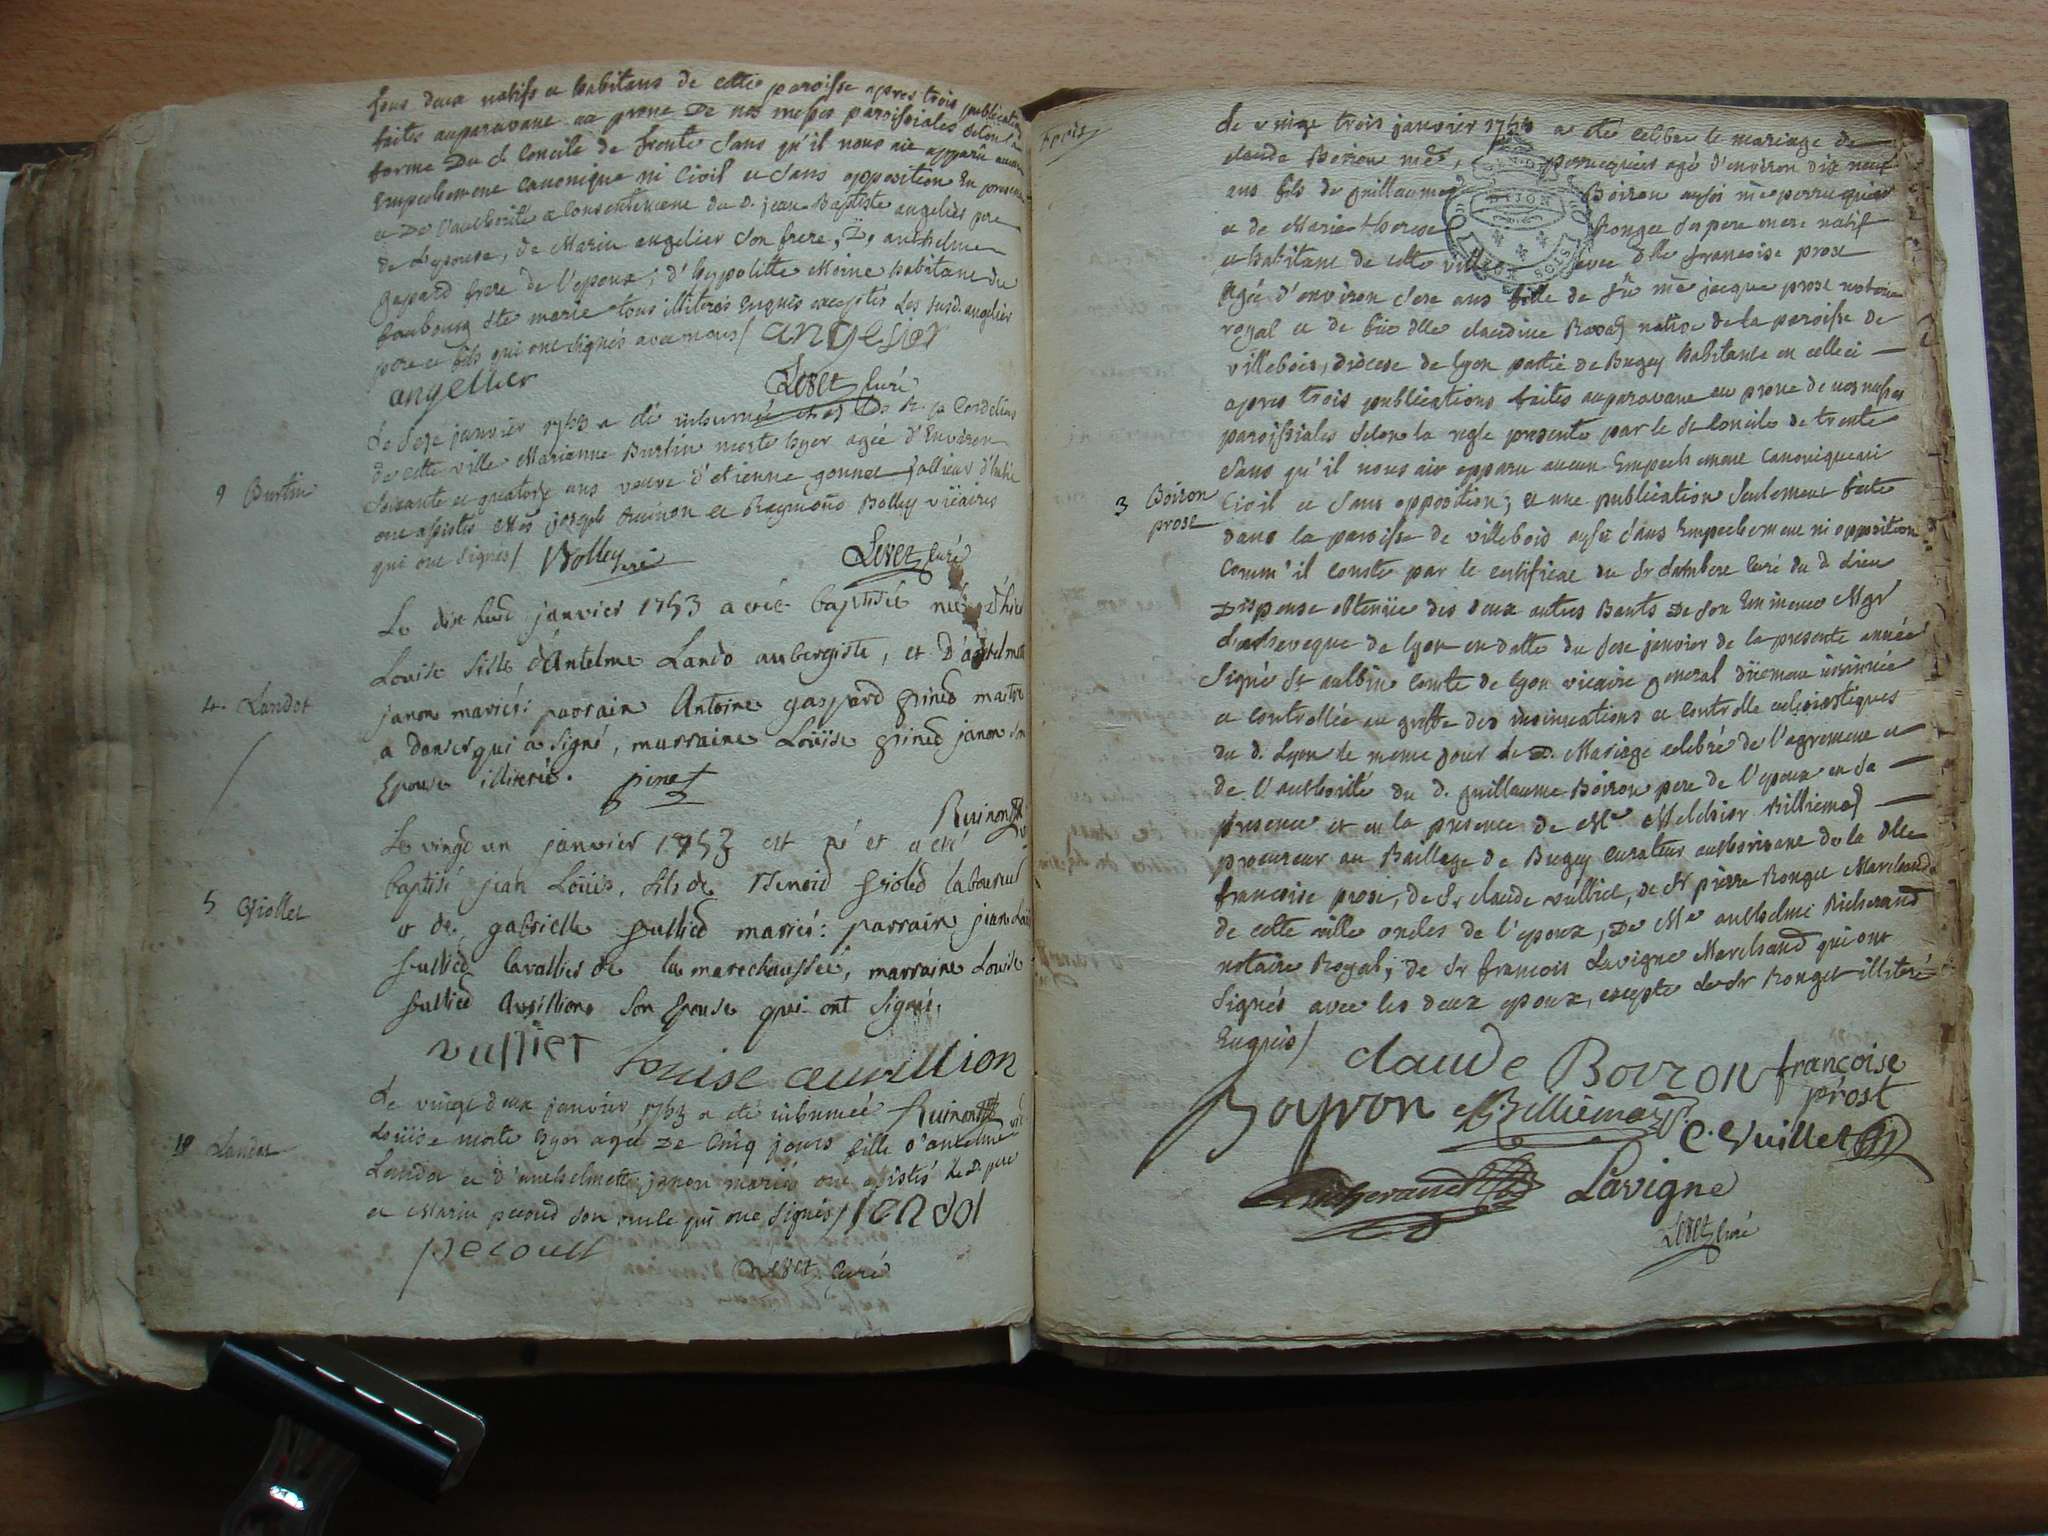 tous deux natifs et habitans de cette paroisse apres trois publications
faites auparavant au prone De nos messes paroissiales selon la
forme Du st Concile de trente sans qu'il nous aie apparu aucun
Empechement canonique ni Civil et sans opposition En presence
et De l'authorité et consentement du d. jean Baptiste angelier pere
de L'epouse, de Marin angelier son frere, D. anthelme
gaspard frere de l'epoux, d'hyppolitte Moine habitant du
faubourg ste marie tous illiterés Enquis exceptés Les susd. angelier
pere et fils qui ont signés avec nous / angelier
angellier Levet curé
9 Burtin
Le sese janvier 1753 a été inhumée chez Ds R. p. Cordeliers
de cette ville Marianne Burtin morte hyer agée d'Environ
soixante et quatorze ans veuve d'etienne gonnet
ont assistés Mes joseph Ruinon et Raymond Bolley vicaires
qui ont signés / Bolley vic Levet curé
4. Landot
Le dix huit janvier 1753 a été baptisée née d'hier
Louise fille d'Antelme Lando aubergiste, et d'antelmette
janon mariés: parrain Antoine gaspard pined maitre
a danser qui a signé, marraine Loüise pined janon son
Epouse illiterée. pinet
Ruinon vic
5 Griollet
Le vingt un janvier 1753 est né et a été
baptisé jean Loüis, fils de Benoid laboureur
et de gabrielle mariés: parrain jean Loüis
cavallier de la marechaussée, marraine Louise
son Epouse qui ont signés.
vullier Louise auvillion
Ruinon vic
18 Landot
Le vingt deux janvier 1753 a été inhumée
Loüise morte hyer agée De Cinq jours fille d'antelme
Landot et d'anthelmette janon mariés ont assistés le D. pere
et Marin pecoud son oncle qui ont signés / lendot
pecoult
Levet curé
3 Boiron
prost
Le vingt trois janvier 1753 a été celebré le mariage de
claude Boiron me perruquier agé d'environ dix neuf
ans fils de guillaume Boiron aussi me perruquier
et de Marie therese Ronget ses pere mere natif
et habitant de cette ville avec Dlle francoise prost
agée d'environ sese ans fille de me jacque prost notaire
royal et de Dlle claudine native de la paroisse de
villebois, diocese de Lyon partie de Bugey habitante en celle ci
apres trois publications faites auparavant au prone de nos messes
paroissiales selon la regle presente par le st Concile de trente
sans qu'il nous aie apparu aucun Empechement canonique ni
Civil et sans opposition; et une publication seulement faite
dans la paroisse de villebois aussi sans Empechement ni opposition
comm'il conste par le certificat du sr curé du d. Lieu
Dispense obtenüe des deux autres Bants De son Eminence Mgr
L'archeveque de Lyon en datte du sese janvier de la presente année
signé st aulbin comte de Lyon vicaire general düement insinuée
et controllée au greffe des insinuations et controlle ecclesiastiques
du d. Lyon le meme jour le D. Mariage celebré de l'agrement et
de l'authorité du d. guillaume Boiron pere de l'epoux en sa
presence et en la presence de Me Melchior Billiemaz
procureur au Baillage de Bugey curateur authorisant de la Dlle
francoise prost, de sr claude vulliet, de sr pierre Ronget Marchands
de cette ville oncles de l'epoux, De Me anthelme Richerand
notaire Royal, de sr francois Lavigne Marchand qui ont
signés avec les deux epoux, excepté le sr Ronget illiteré
Enquis /
claude Boiron françoise
prost
Boyron Billiemaz C. Vuillet
Richerand Lavigne
Levet curé